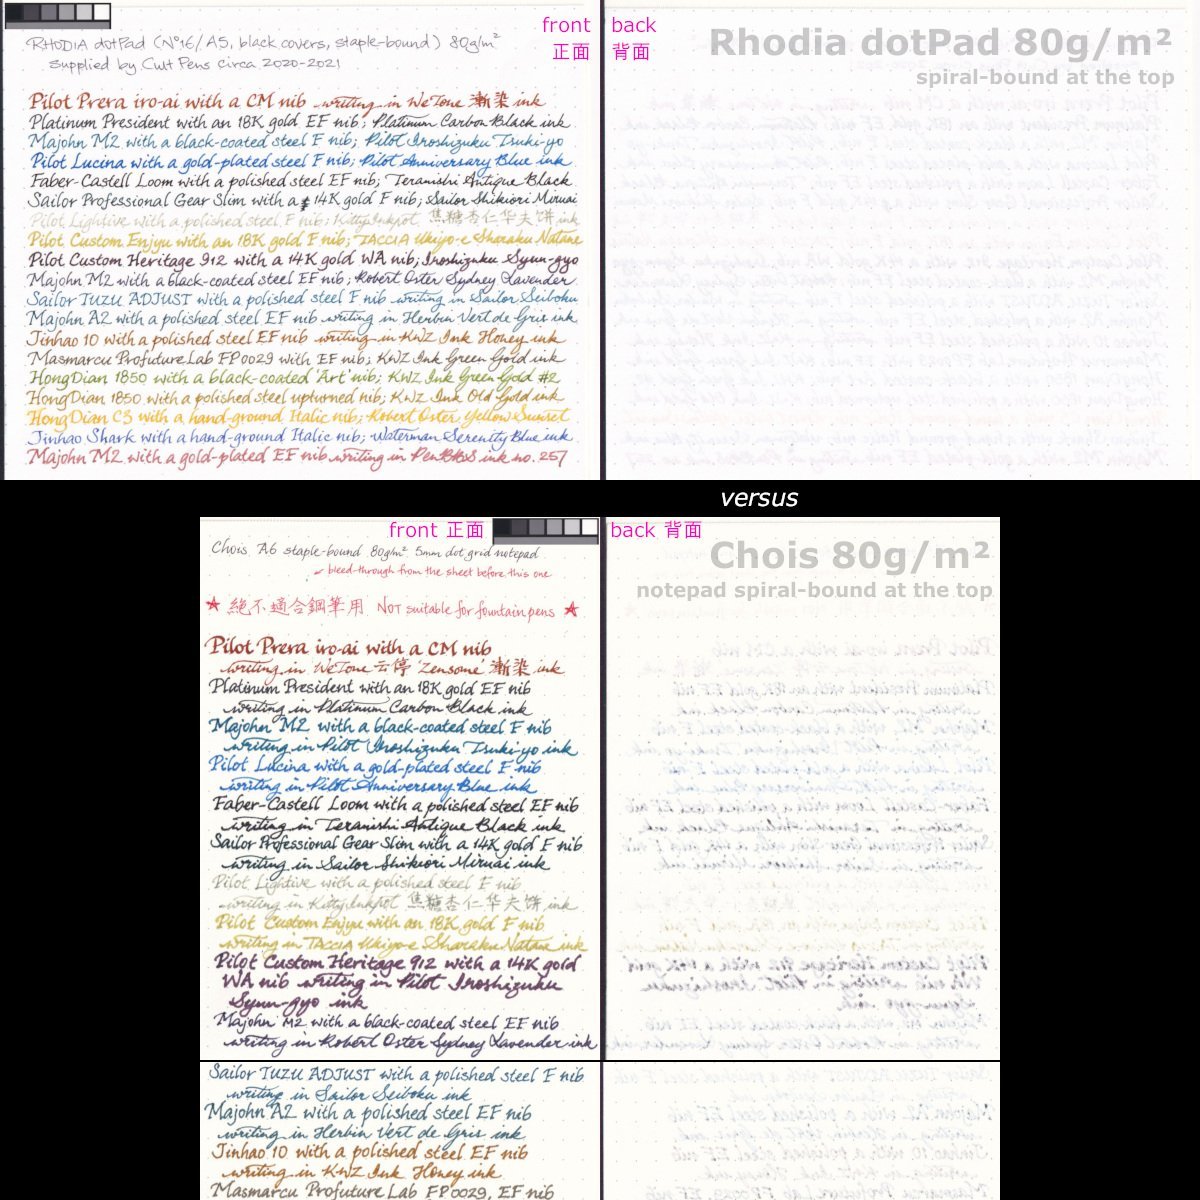 front
正面
back
背面
RHODIA dotPad (Nº16/A5, black covers, staple-bound) 80g/m²
supplied by Cult Pens circa 2020-2021
Rhodia dotPad 80g/m²
spiral-bound at the top
Pilot Prera iro-ai with a CM nib writing in WeTone 漸染 ink
Platinum President with an 18K gold EF nib; Platinum Carbon Black ink
Majohn M2 with a black-coated steel F nib; Pilot Iroshizuku Tsuki-yo
Pilot Lucina with a gold-plated steel F nib; Pilot Anniversary Blue ink
Faber-Castell Loom with a polished steel EF nib; Teranishi Antique Black
Sailor Professional Gear Slim with a 14K gold F nib; Sailor Shikiori Miruai
Pilot Lightive with a polished steel F nib; KittyInkpot 焦糖杏仁华夫饼 ink
Pilot Custom Enjyu with an 18K gold F nib; TACCIA Ukiyo-e Sharaku Natane
Pilot Custom Heritage 912 with a 14K gold WA nib; Iroshizuku Syun-gyo
Majohn M2 with a black-coated steel EF nib; Robert Oster Sydney Lavender
Sailor TUZU ADJUST with a polished steel F nib writing in Sailor Seiboku
Majohn A2 with a polished steel EF nib writing in Herbin Vert de Gris ink
Jinhao 10 with a polished steel EF nib writing in KWZ Ink Honey ink
Masmarcu Profuture Lab FP0029 with EF nib; KWZ Ink Green Gold ink
HongDian 1850 with a black-coated 'Art' nib; KWZ Ink Green Gold #2
HongDian 1850 with a polished steel upturned nib; KWZ Ink Old Gold ink
HongDian C3 with a hand-ground Italic nib; Robert Oster Yellow Sunset
Jinhao Shark with a hand-ground Italic nib; Waterman Serenity Blue ink
Majohn M2 with a gold-plated EF nib writing in PenBBS ink no. 257
versus
front 正面
back 背面
Chois A6 staple-bound 80g/m² 5mm dot grid notepad
bleed-through from the sheet before this one
★ 絕不適合鋼筆用 NOT suitable for fountain pens ★
Chois 80g/m²
notepad spiral-bound at the top
Pilot Prera iro-ai with a CM nib
writing in WeTone 云停 'Zensome' 漸染 ink
Platinum President with an 18K gold EF nib
writing in Platinum Carbon Black ink
Majohn M2 with a black-coated steel F nib
writing in Pilot Iroshizuku Tsuki-yo ink
Pilot Lucina with a gold-plated steel F nib
writing in Pilot Anniversary Blue ink
Faber-Castell Loom with a polished steel EF nib
writing in Teranishi Antique Black ink
Sailor Professional Gear Slim with a 14K gold F nib
writing in Sailor Shikiori Miruai ink
Pilot Lightive with a polished steel F nib
writing in KittyInkpot 焦糖杏仁华夫饼 ink
Pilot Custom Enjyu with an 18K gold F nib
writing in TACCIA Ukiyo-e Sharaku Natane ink
Pilot Custom Heritage 912 with a 14K gold
WA nib writing in Pilot Iroshizuku
Syun-gyo ink
Majohn M2 with a black-coated steel EF nib
writing in Robert Oster Sydney Lavender ink
Sailor TUZU ADJUST with a polished steel F nib
writing in Sailor Seiboku ink
Majohn A2 with a polished steel EF nib
writing in Herbin Vert de Gris ink
Jinhao 10 with a polished steel EF nib
writing in KWZ Ink Honey ink
Masmarcu Profuture Lab FP0029, EF nib